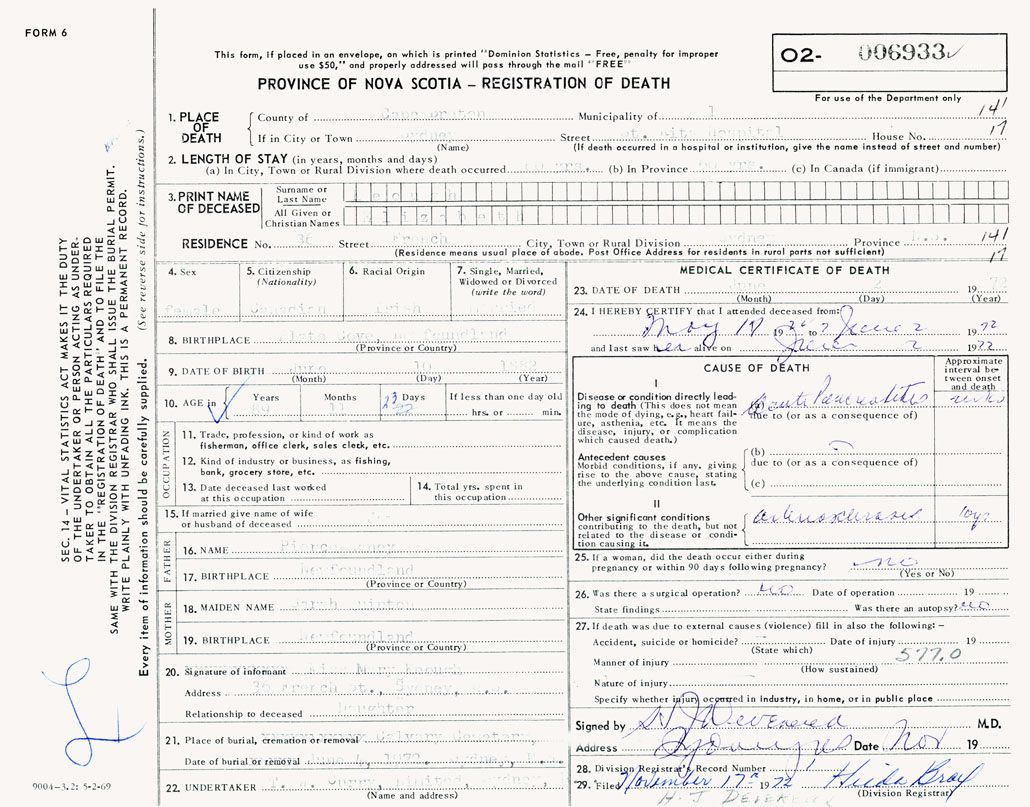 FORM 6
This form, if placed in an envelope, on which is printed "Dominion Statistics – Free, penalty for improper
use $50," and properly addressed will pass through the mail "FREE"
O2- 006933
PROVINCE OF NOVA SCOTIA – REGISTRATION OF DEATH
For use of the Department only
1. PLACE OF DEATH
County of Cape Breton Municipality of 1 141
If in City or Town Sydney Street St. Rita Hospital House No. 17
(Name) (If death occurred in a hospital or institution, give the name instead of street and number)
2. LENGTH OF STAY (in years, months and days)
(a) In City, Town or Rural Division where death occurred yrs. (b) In Province yrs. (c) In Canada (if immigrant)
3. PRINT NAME OF DECEASED
Surname or Last Name Keough
All Given or Christian Names Elizabeth
RESIDENCE No. 36 Street French City, Town or Rural Division Sydney Province N.S. 141
(Residence means usual place of abode. Post Office Address for residents in rural parts not sufficient) 17
4. Sex
female
5. Citizenship (Nationality)
Canadian
6. Racial Origin
Irish
7. Single, Married, Widowed or Divorced (write the word)
8. BIRTHPLACE Cove, Newfoundland
(Province or Country)
9. DATE OF BIRTH June 10 1882
(Month) (Day) (Year)
10. AGE in
Years 89
Months 11
Days 23
If less than one day old
hrs. or min.
OCCUPATION
11. Trade, profession, or kind of work as
fisherman, office clerk, sales clerk, etc.
12. Kind of industry or business, as fishing,
bank, grocery store, etc.
13. Date deceased last worked
at this occupation
14. Total yrs. spent in
this occupation
15. If married give name of wife
or husband of deceased
FATHER
16. NAME
17. BIRTHPLACE Newfoundland
(Province or Country)
MOTHER
18. MAIDEN NAME Sarah
19. BIRTHPLACE Newfoundland
(Province or Country)
20. Signature of informant Miss Mary Keough
Address 36 French St., Sydney, N.S.
Relationship to deceased Daughter
21. Place of burial, cremation or removal Calvary Cemetery
Date of burial or removal June 4, 1972 Sydney, N.S.
22. UNDERTAKER T. W. Curry Limited, Sydney, N.S.
(Name and address)
MEDICAL CERTIFICATE OF DEATH
23. DATE OF DEATH June 2 1972
(Month) (Day) (Year)
24. I HEREBY CERTIFY that I attended deceased from:
May 19 to June 2 1972
and last saw her alive on June 2 1972
CAUSE OF DEATH
Approximate interval between onset and death
I
Disease or condition directly leading
to death (This does not mean
the mode of dying, e.g., heart failure,
asthenia, etc. It means the
disease, injury, or complication
which caused death.)
(a) Acute Pancreatitis
due to (or as a consequence of)
Antecedent causes
Morbid conditions, if any, giving
rise to the above cause, stating
the underlying condition last.
(b)
due to (or as a consequence of)
(c)
II
Other significant conditions
contributing to the death, but not
related to the disease or condition
causing it.
arteriosclerosis 10 yr
25. If a woman, did the death occur either during
pregnancy or within 90 days following pregnancy? no
(Yes or No)
26. Was there a surgical operation? no Date of operation 19
State findings Was there an autopsy? no
27. If death was due to external causes (violence) fill in also the following: –
Accident, suicide or homicide? Date of injury 19
(State which)
Manner of injury 577.0
(How sustained)
Nature of injury
Specify whether injury occurred in industry, in home, or in public place
Signed by M.D.
Address Date Nov 19
28. Division Registrar's Record Number
29. Filed November 17th 1972 Hilda Bray
(Division Registrar)
SEC. 14 – VITAL STATISTICS ACT MAKES IT THE DUTY
OF THE UNDERTAKER OR PERSON ACTING AS UNDER-
TAKER TO OBTAIN ALL THE PARTICULARS REQUIRED
IN THE "REGISTRATION OF DEATH" AND TO FILE THE
SAME WITH THE DIVISION REGISTRAR WHO SHALL ISSUE THE BURIAL PERMIT.
WRITE PLAINLY WITH UNFADING INK. THIS IS A PERMANENT RECORD.
Every item of information should be carefully supplied. (See reverse side for instructions.)
9004–3.2: 5-2-69